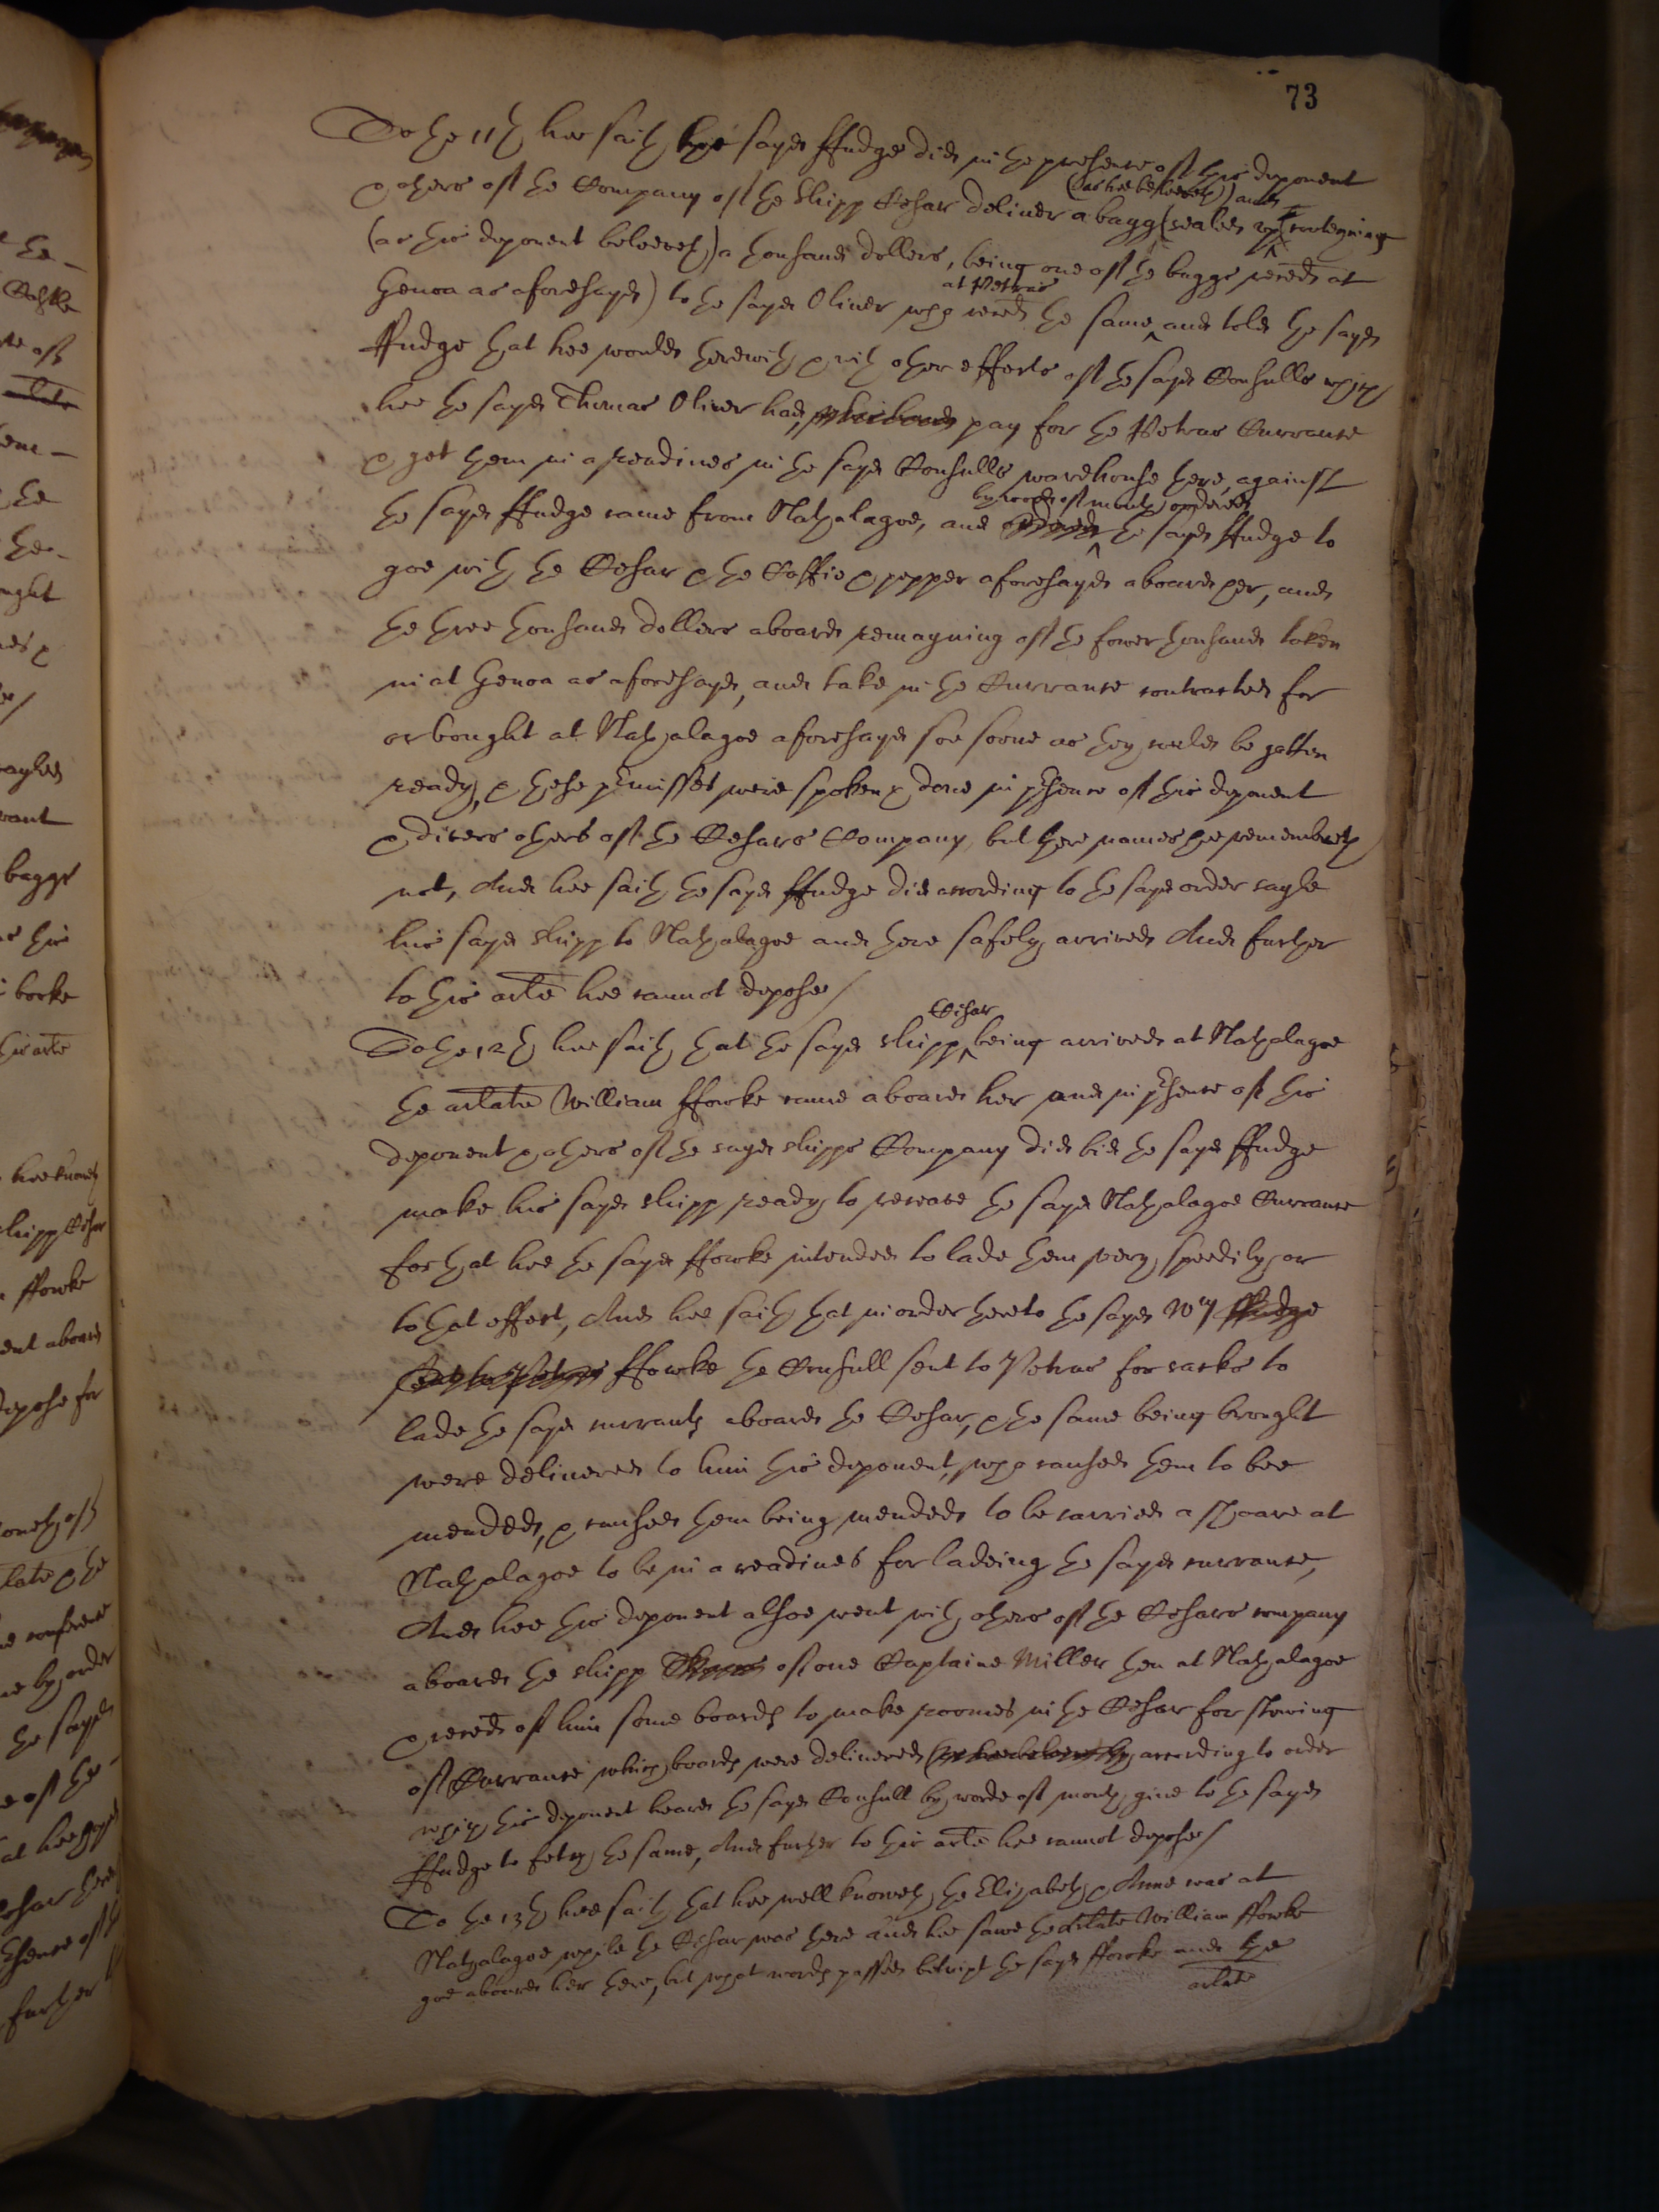 73
To the 11th hee saith the sayd ffudge did in the presence of this deponent
& others of the Company of the Shipp Cesar deliver a bagg (sealed up (as hee beleeveth) and contayning
(as this deponent beleeveth) a thousand dollers, being one of the baggs receed at
Genoa as aforesayd) to the sayd Oliver who receed the same at Petras and told the sayd
ffudge that hee would therewith & with other effects of the sayd Consulls which
hee the sayd Thomas Oliver had, in his hands pay for the Petras Currance
& get them in a readines in the sayd Consulls warehouse there, against
the sayd ffudge came from Nathalagoe, and ordered by word of mouth ordered the sayd ffudge to
goe with the Cesar & the Coffie & pepper aforesayd aboard her, and
the three thousand dollers aboard remayning of the fower thousand taken
in at Genoa as aforesayd, and take in the Currance contracted for
or bought at Nathalagoe aforesayd soe soone as they could be gotten
ready, & these premisses were spoken & done in presence of this deponent
& divers others of the Cesars Company, but there names hee remembreth
not, And hee saith the sayd ffudge did according to the sayd order sayle
his sayd shipp to Nathalagoe and there safely arrived And further
to this arle hee cannot depose/
To the 12th hee saith that the sayd shipp Cesar being arrived at Nathalagoe
the arlate William ffowke came aboard her and in presence of this
deponent & others of the sayd shipps Company did bid the sayd ffudge
make his sayd shipp ready to receave the sayd Nathalagoe Currance
for that hee the sayd ffowke intended to lade them very speedily, or
to that effect, And hee saith that in order thereto the sayd Wm ffudge
sent to Petras ffowke the Consull sent to Petras for sacks to
lade the sayd currants aboard the Cesar, & the same being brought
were delivered to him this deponent, who caused them to bee
mended, & caused them being mended to be carried a shoare at
Nathalagoe to be in a readines for ladeing the sayd currance,
And hee this deponent alsoe went with others of the Cesars company
aboard the shipp of one Captaine Miller then at Nathalagoe
& receed of him some boards to make roomes in the Cesar for stowing
of Currance which boards were delivered (as hee beleeveth) according to order
which this deponent heard the sayd Consull by worde of mouth give to the sayd
ffudge to fetch the same, And further to this arle hee cannot depose/
To the 13th hee saith that hee well knoweth the Elizabeth & Anne was at
Nathalagoe while the Cesar was there And hee sawe the arlate William ffowke
goe aboard her there, but what words passed betwixt the sayd ffowke and the
arlate